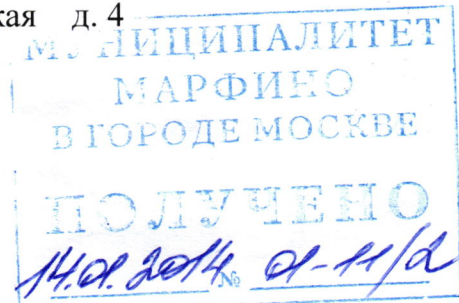 кая д. 4
МУНИЦИПАЛИТЕТ
МАРФИНО
В ГОРОДЕ МОСКВЕ
ПОЛУЧЕНО
14.01.2014 № 01-11/2